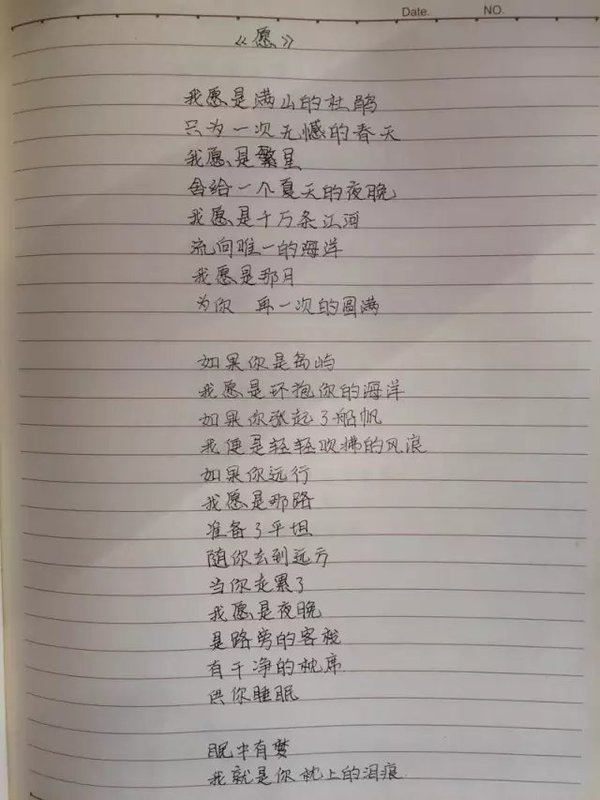 Date.    NO.
《愿》
我愿是满山的杜鹃
只为一次无憾的春天
我愿是繁星
舍给一个夏天的夜晚
我愿是千万条江河
流向唯一的海洋
我愿是那月
为你 再一次的圆满
如果你是岛屿
我愿是环抱你的海洋
如果你张起了船帆
我便是轻轻吹拂的风浪
如果你远行
我愿是那路
准备了平坦
随你去到远方
当你走累了
我愿是夜晚
是路旁的客栈
有干净的枕席
供你睡眠
眠中有梦
我就是你枕上的泪痕